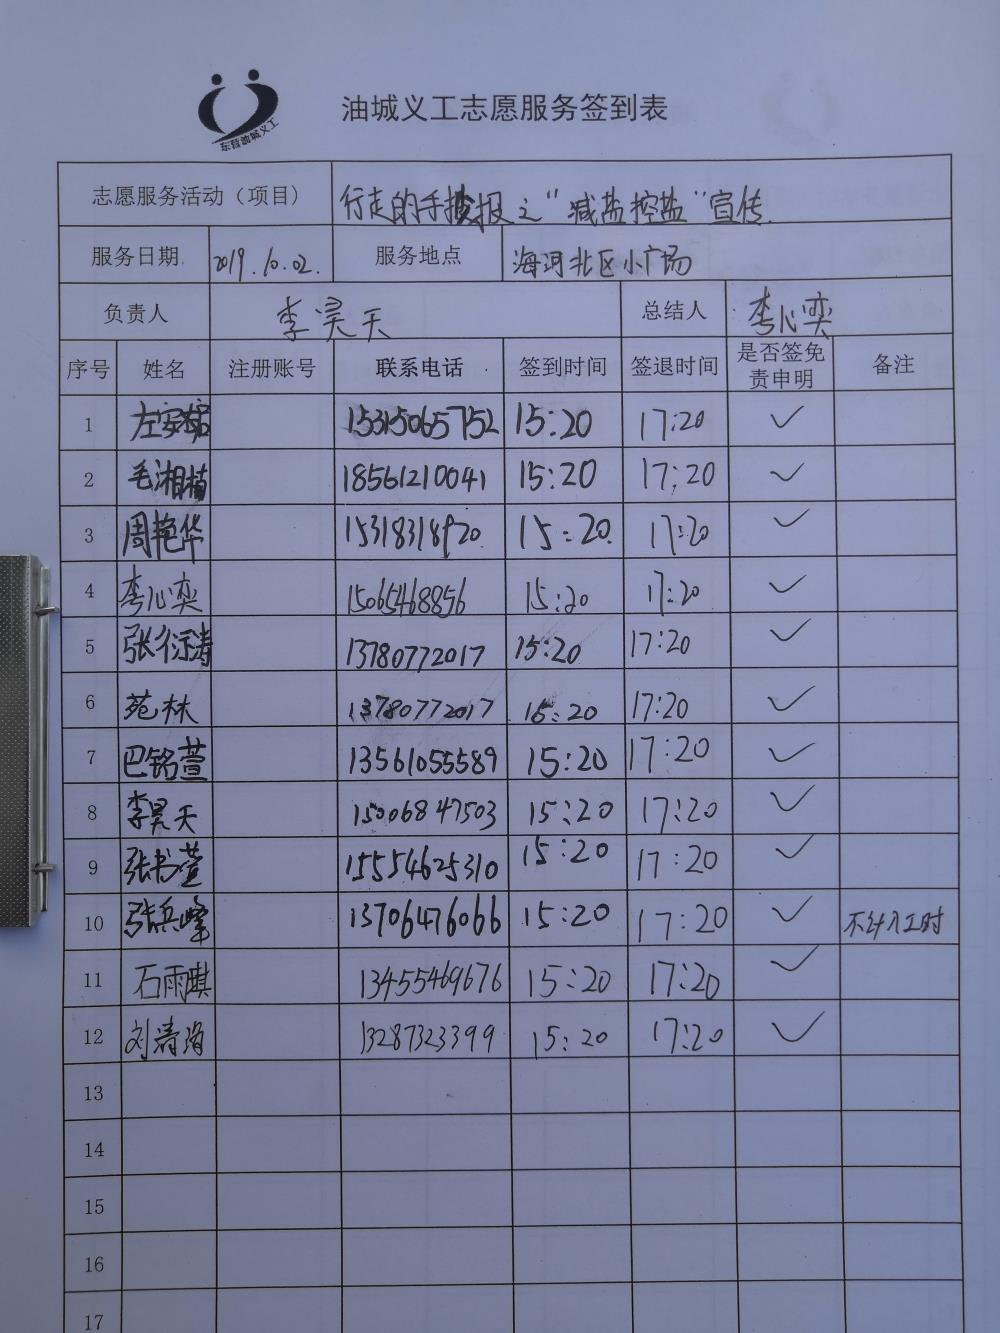 东营油城义工
油城义工志愿服务签到表
志愿服务活动（项目） 行走的手抄报之“减盐控盐”宣传
服务日期 2019.10.02. 服务地点 海河北区小广场
负责人 李昊天 总结人 李心奕
序号 姓名 注册账号 联系电话 签到时间 签退时间 是否签免责申明 备注
1 15315065752 15:20 17:20 ✓
2 毛湘楠 18561210041 15:20 17:20 ✓
3 周艳华 15318318920 15:20 17:20 ✓
4 李心奕 15065468856 15:20 17:20 ✓
5 张衍涛 13780772017 15:20 17:20 ✓
6 苑林 13780772017 15:20 17:20 ✓
7 巴铭萱 13561055589 15:20 17:20 ✓
8 李昊天 15006847503 15:20 17:20 ✓
9 张书萱 15554625310 15:20 17:20 ✓
10 张兵峰 13706476066 15:20 17:20 ✓ 不计入工时
11 石雨琪 13455469676 15:20 17:20 ✓
12 13287323399 15:20 17:20 ✓
13
14
15
16
17